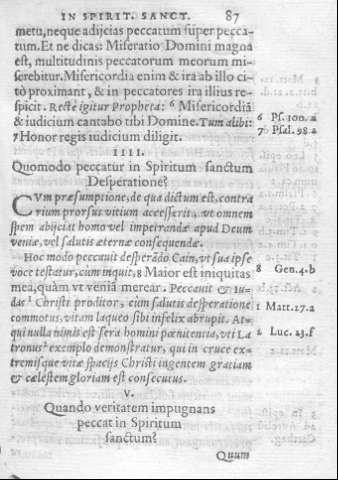 IN SPIRIT. SANCT. 87
metu, neque adijcias peccatum super pecca-
tum. Et ne dicas: Miseratio Domini magna
est, multitudinis peccatorum meorum mi-
serebitur. Misericordia enim & ira ab illo ci-
tò proximant, & in peccatores ira illius re-
spicit. Rectè igitur Propheta: 6 Misericordiã
& iudicium cantabo tibi Domine. Tum alibi:
6 Ps. 100.a
7 Honor regis iudicium diligit.
7 Psal. 98.a
IIII.
Quomodo peccatur in Spiritum sanctum
Desperatione?
CVm præsumptione, de qua dictum est, contra
rium prorsus vitium accesserit, vt omnem
spem abijciat homo vel impetrandæ apud Deum
veniæ, vel salutis æternæ consequendæ.
Hoc modo peccauit desperãdo Cain, vt sua ipse
voce testatur, cùm inquit, 8 Maior est iniquitas
8 Gen. 4.b
mea, quàm vt veniã merear. Peccauit & Iu-
das 1 Christi proditor, cùm salutis desperatione
1 Matt. 27.a
commotus, vitam laqueo sibi infelix abrupit. At-
qui nulla nimis est sera homini pœnitentia, vti La
2 Luc. 23.f
tronis 2 exemplo demonstratur, qui in cruce ex-
tremisque vitæ spacijs Christi ingentem gratiam
& cælestem gloriam est consecutus.
V.
Quando veritatem impugnans
peccat in Spiritum
sanctum?
Quum